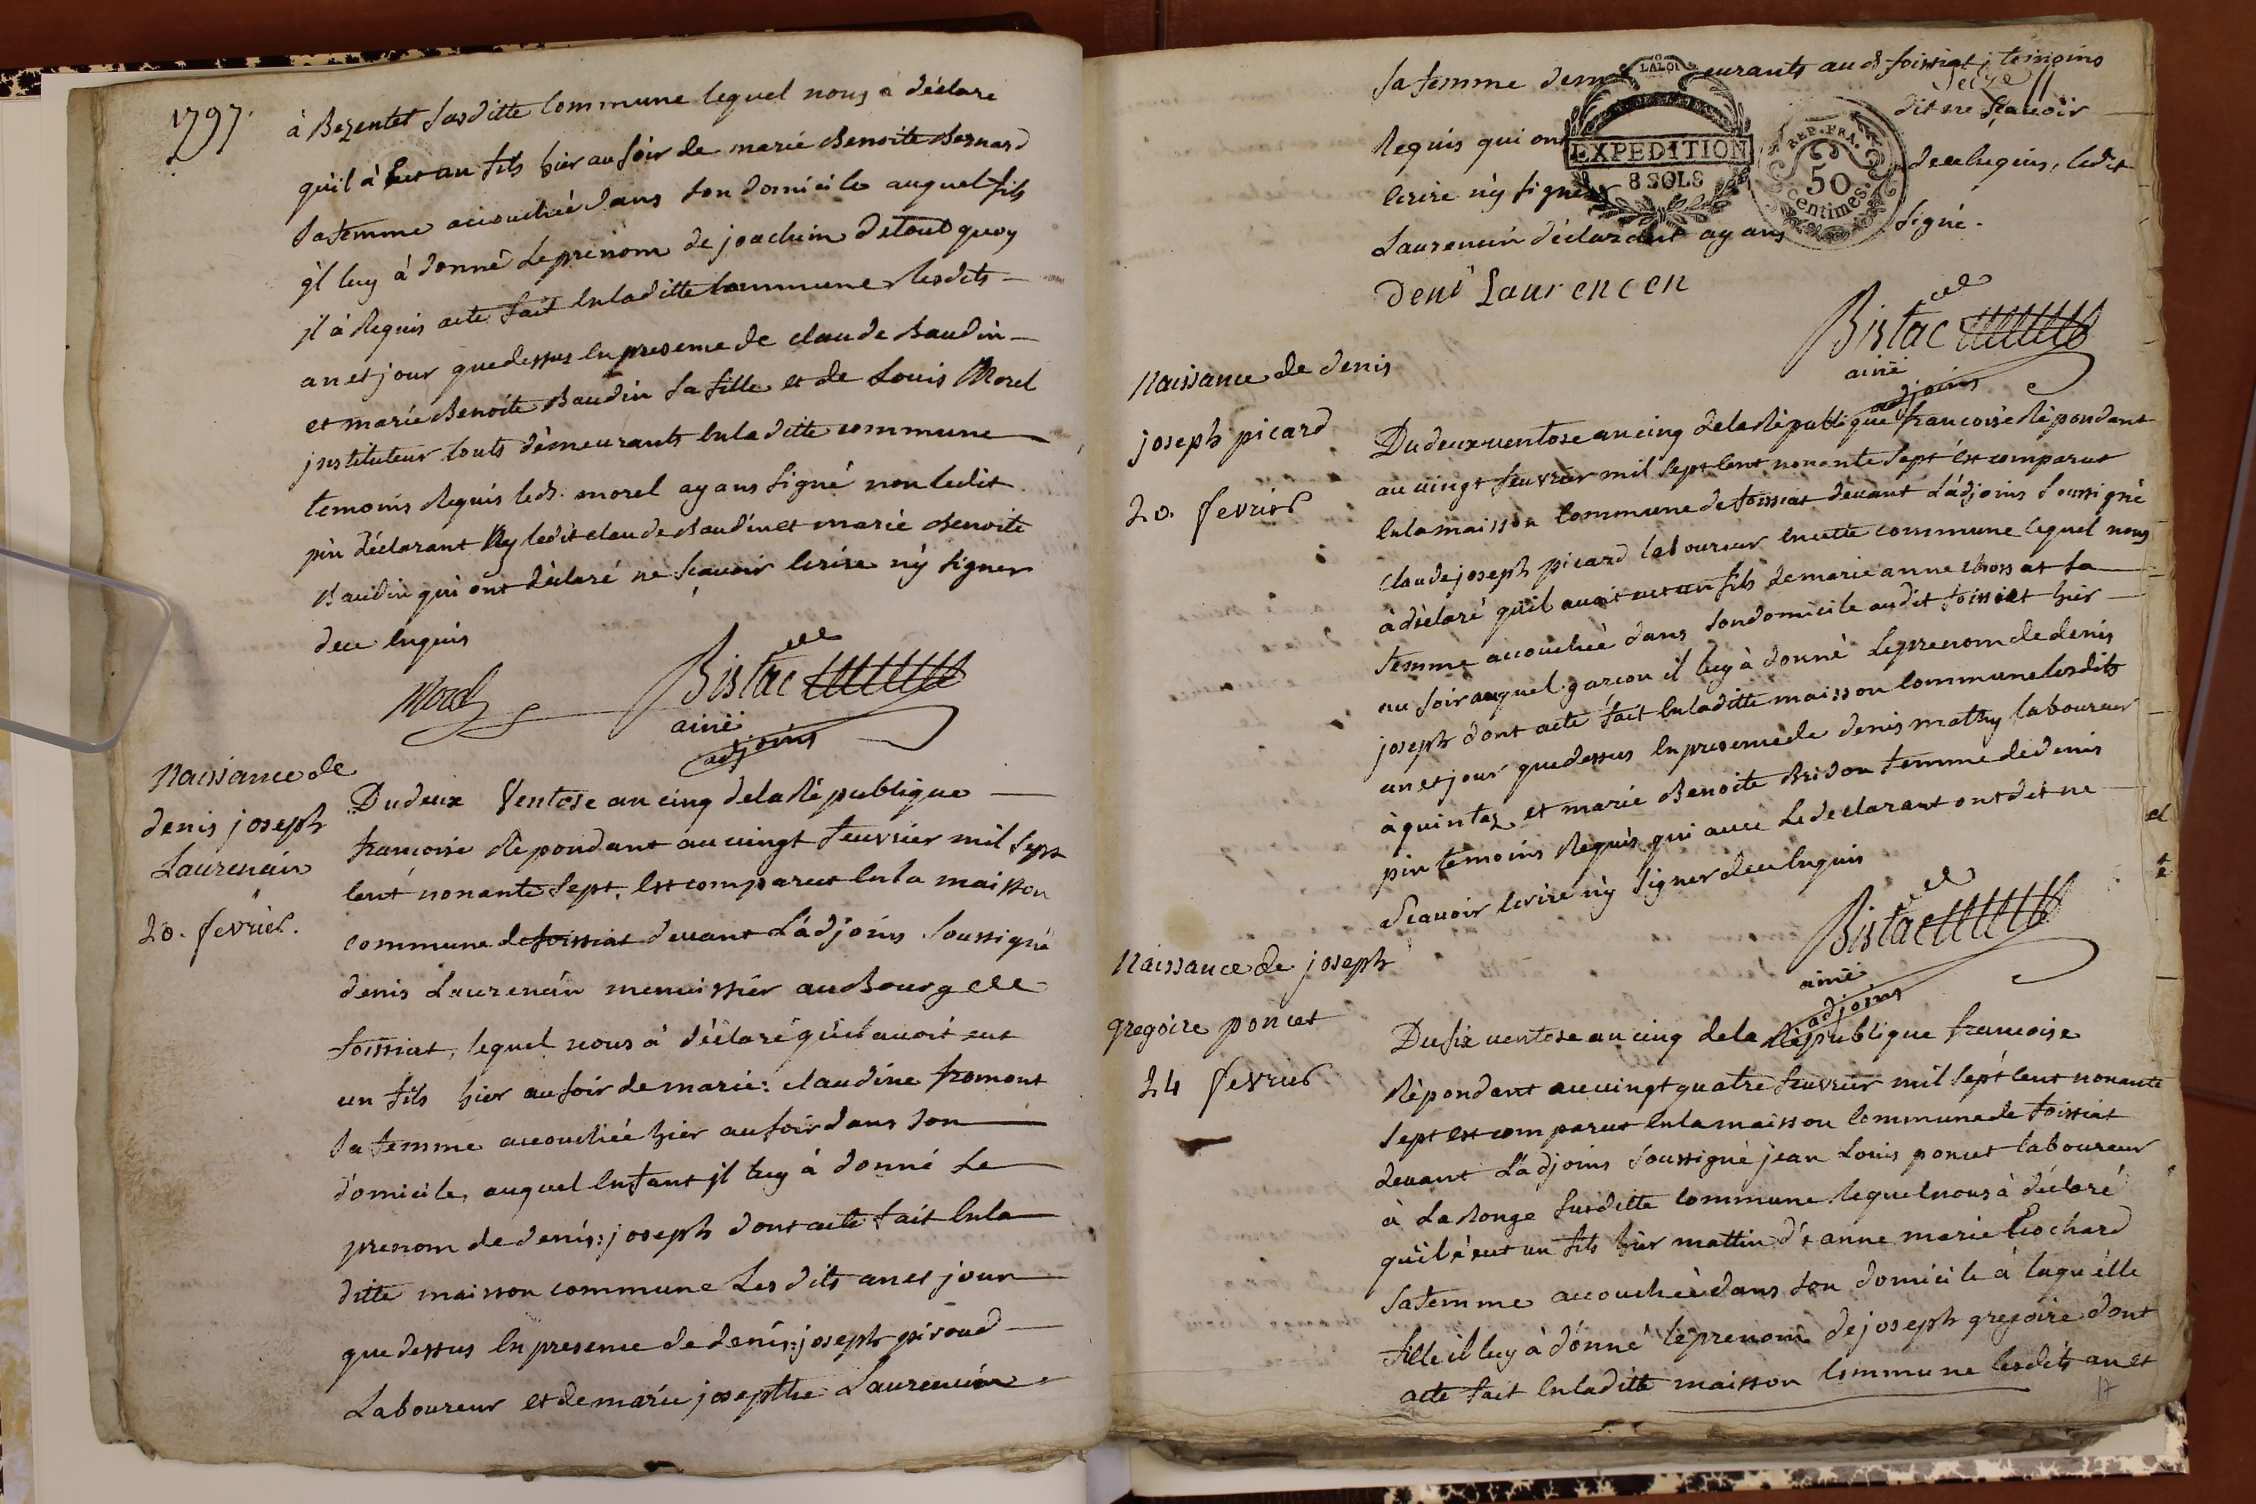 1797.
à Bezentet Susditte Commune lequel nous à déclare
quil à Eut un fils hier au soir de marie Benoite Bernard
Sa femme accouchée dans son domicile auquel fils
jl luy à donné Le prenom de joachim de tout quoy
jl à Requis acte fait En laditte Commune Lesdits
an et jour que dessus En presence de claude Baudin
et marie Benoite Baudin Sa fille et de Louis Morel
jnstituteur touts démeurants En la ditte commune
temoins Requis led. morel ayans Signé non ledit
pin déclarant Ny ledit claude Baudin et marie Benoite
Baudin qui ont déclaré ne Scavoir Ecrire ny Signer
de ce Enquis
Morel
Bistac
ainé
adjoins
Naissance de
denis joseph
Laurencin
20. fevrier.
Du deux Ventose an cinq de la République
francoise Répondant au vingt feuvrier mil Sept
Cent nonante Sept, Est comparut En la maisson
commune de foissiat devant L'adjoins Soussigné
denis Laurencin menuissier au Bourg de
foissiat, lequel nous à déclaré quil avoit eut
un fils hier au soir de marie: claudine fromont
Sa femme accouchée hier au soir dans Son
domicile, auquel Enfant jl luy à donné Le
prenom de denis: joseph dont acte fait En la
ditte maisson commune Les dits an et jour
que dessus En presence de denis: joseph piroud
Laboureur et de marie josephte Laurencin
Sa femme demeurants aud. foissiat temoins
Requis qui ont dit ne Scavoir
Ecrire ny Signer de ce Enquis, ledit
Laurencin déclarant ayans Signé.
LALOI
EXPEDITION
8 SOLS
REP. FRA.
50
Centimes.
Seize
deni Laurencen
Bistac
ainé
adjoins
Naissance de denis
joseph picard
20. fevrier
Du deux ventose an cinq de la République francoise Répondant
au vingt feuvrier mil Sept Cent nonante Sept Est comparut
En la maisson Commune de foissiat dévant L'adjoins Soussigné
Claude joseph picard laboureur En cette commune lequel nous
à déclaré quil avoit eut un fils de marie anne Chossat Sa
femme accouchée dans Son domicile audit foissiat hier
au Soir auquel garcon il luy à donné Le prenom de denis
joseph dont acte fait En laditte maisson Commune Lesdits
an et jour que dessus En presence de denis mathy laboureur
à quintez et marie Benoite Bridon femme de denis
pin temoins Requis qui avec Le declarant ont dit ne
Scavoir Ecrire ny Signer de ce Enquis
Bistac
ainé
adjoins
Naissance de joseph
gregoire poncet
24 fevrier
Du six ventose an cinq de la République francoise
Répondant au vingt quatre feuvrier mil Sept Cent nonante
Sept Est comparut En la maisson Commune de foissiat
devant L'adjoins Soussigné jean Louis poncet laboureur
à La Ronge Susditte Commune Lequel nous à déclaré
quil à eut un fils hier mattin d'e anne marie Cochard
Sa femme accouchée dans Son domicile à laquélle
fille il luy à donné le prenom de joseph gregoire dont
acte fait En laditte maisson Commune Lesdits an et
17